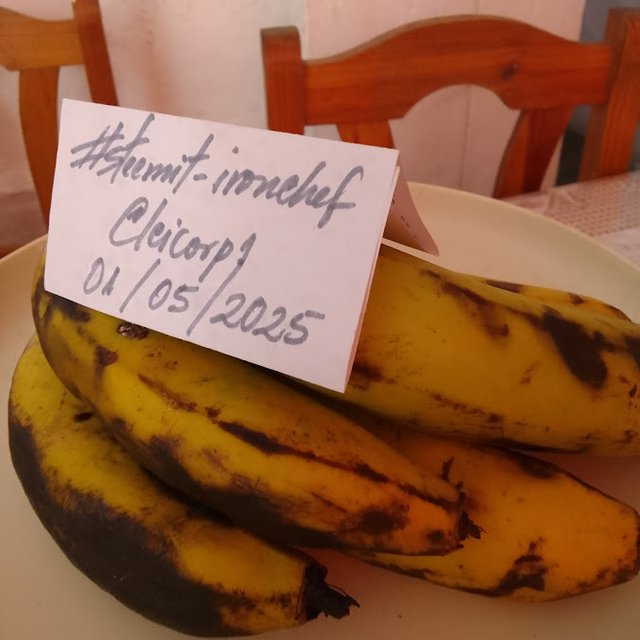 #steemit-ironchef
@leicorp1
01/05/2025